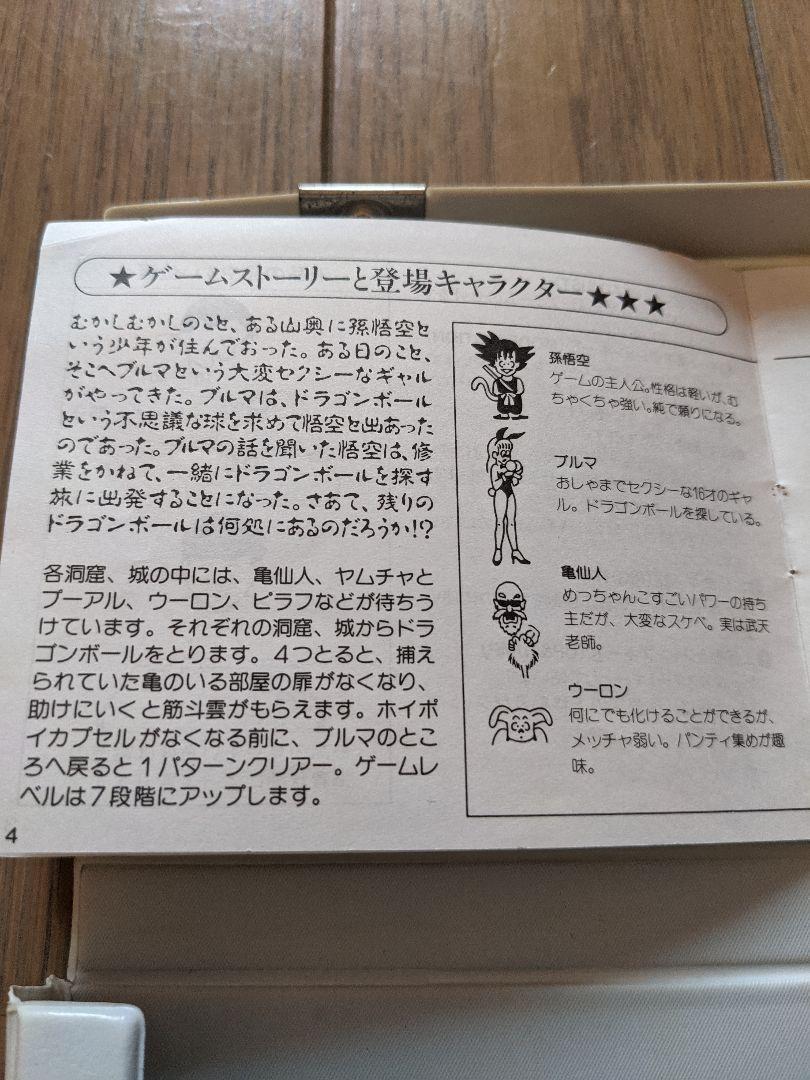 ★ゲームストーリーと登場キャラクター★★★
むかしむかしのこと、ある山奥に孫悟空と
いう少年が住んでおった。ある日のこと、
そこへブルマという大変セクシーなギャル
がやってきた。ブルマは、ドラゴンボール
という不思議な球を求めて悟空と出あった
のであった。ブルマの話を聞いた悟空は、修
業をかねて、一緒にドラゴンボールを探す
旅に出発することになった。さあて、残りの
ドラゴンボールは何処にあるのだろうか!?
各洞窟、城の中には、亀仙人、ヤムチャと
プーアル、ウーロン、ピラフなどが待ちう
けています。それぞれの洞窟、城からドラ
ゴンボールをとります。4つとると、捕え
られていた亀のいる部屋の扉がなくなり、
助けにいくと筋斗雲がもらえます。ホイポ
イカプセルがなくなる前に、ブルマのとこ
ろへ戻ると1パターンクリアー。ゲームレ
ベルは7段階にアップします。
孫悟空
ゲームの主人公。性格は軽いが、む
ちゃくちゃ強い。純で頼りになる。
ブルマ
おしゃまでセクシーな16才のギャ
ル。ドラゴンボールを探している。
亀仙人
めっちゃんこすごいパワーの持ち
主だが、大変なスケベ。実は武天
老師。
ウーロン
何にでも化けることができるが、
メッチャ弱い。パンティ集めが趣
味。
4